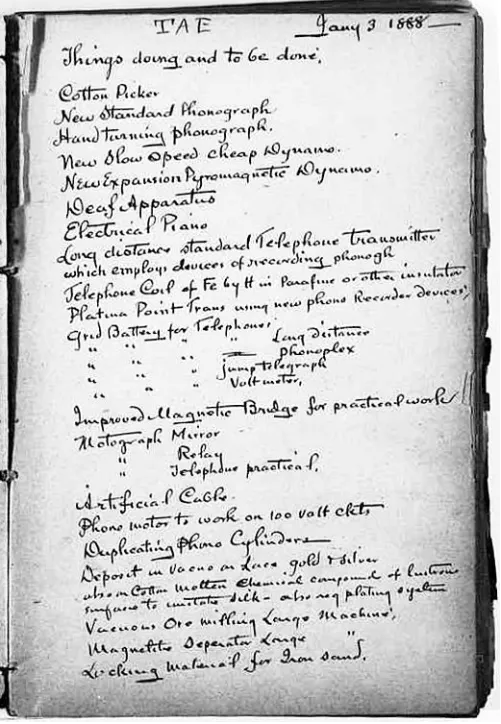 TAE Jany 3 1888
Things doing and to be done,
Cotton Picker
New Standard Phonograph
Hand turning phonograph.
New Slow Speed cheap Dynamo.
New Expansion Pyromagnetic Dynamo.
Deaf Apparatus
Electrical Piano
Long distance standard Telephone Transmitter
which employs devices of recording phonogh
Telephone Coil of Fe by H in Parafine or other insulator
Platina Point Trans using new phono Recorder devices,
Grid Battery for Telephones,
" " " " Long distance
" " " Phonoplex
" " " jump telegraph
" " " Voltmeter,
Improved Magnetic Bridge for practical work
Motograph Mirror
" Relay
" Telephone practical,
Artificial Cable.
Phono motor to work on 100 volt ckts
Duplicating Phono Cylinders
Deposit in vacuo on Lace gold & silver
also on Cotton molten chemical compound of lustrous
surface to imitate silk - also reg plating system
Vacuous Ore milling Large Machine,
Magnetic Seperator Large "
Locking material for Iron sand,